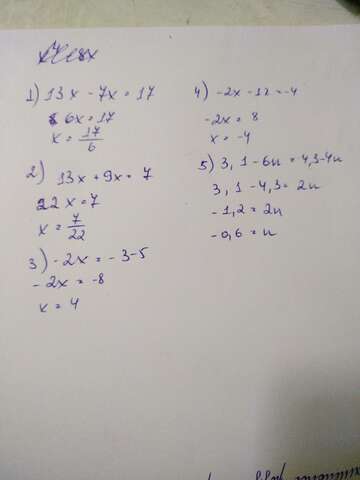 1) 13x - 7x = 17
6x = 17
x = 17/6
2) 13x + 9x = 7
22x = 7
x = 7/22
3) -2x = -3-5
-2x = -8
x = 4
4) -2x - 12 = -4
-2x = 8
x = -4
5) 3,1 - 6u = 4,3-4u
3,1 - 4,3 = 2u
-1,2 = 2u
-0,6 = u